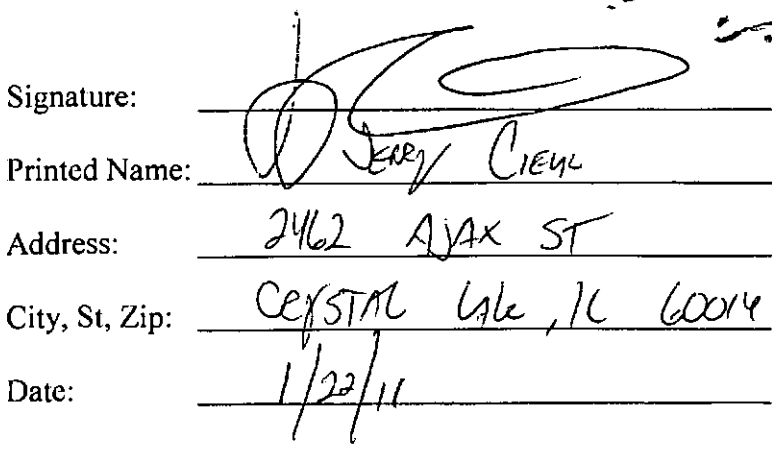 Signature:
Printed Name: Jerry
Address: 2462 AJAX ST
City, St, Zip: Crystal Lake, IL 60014
Date: 1/22/11